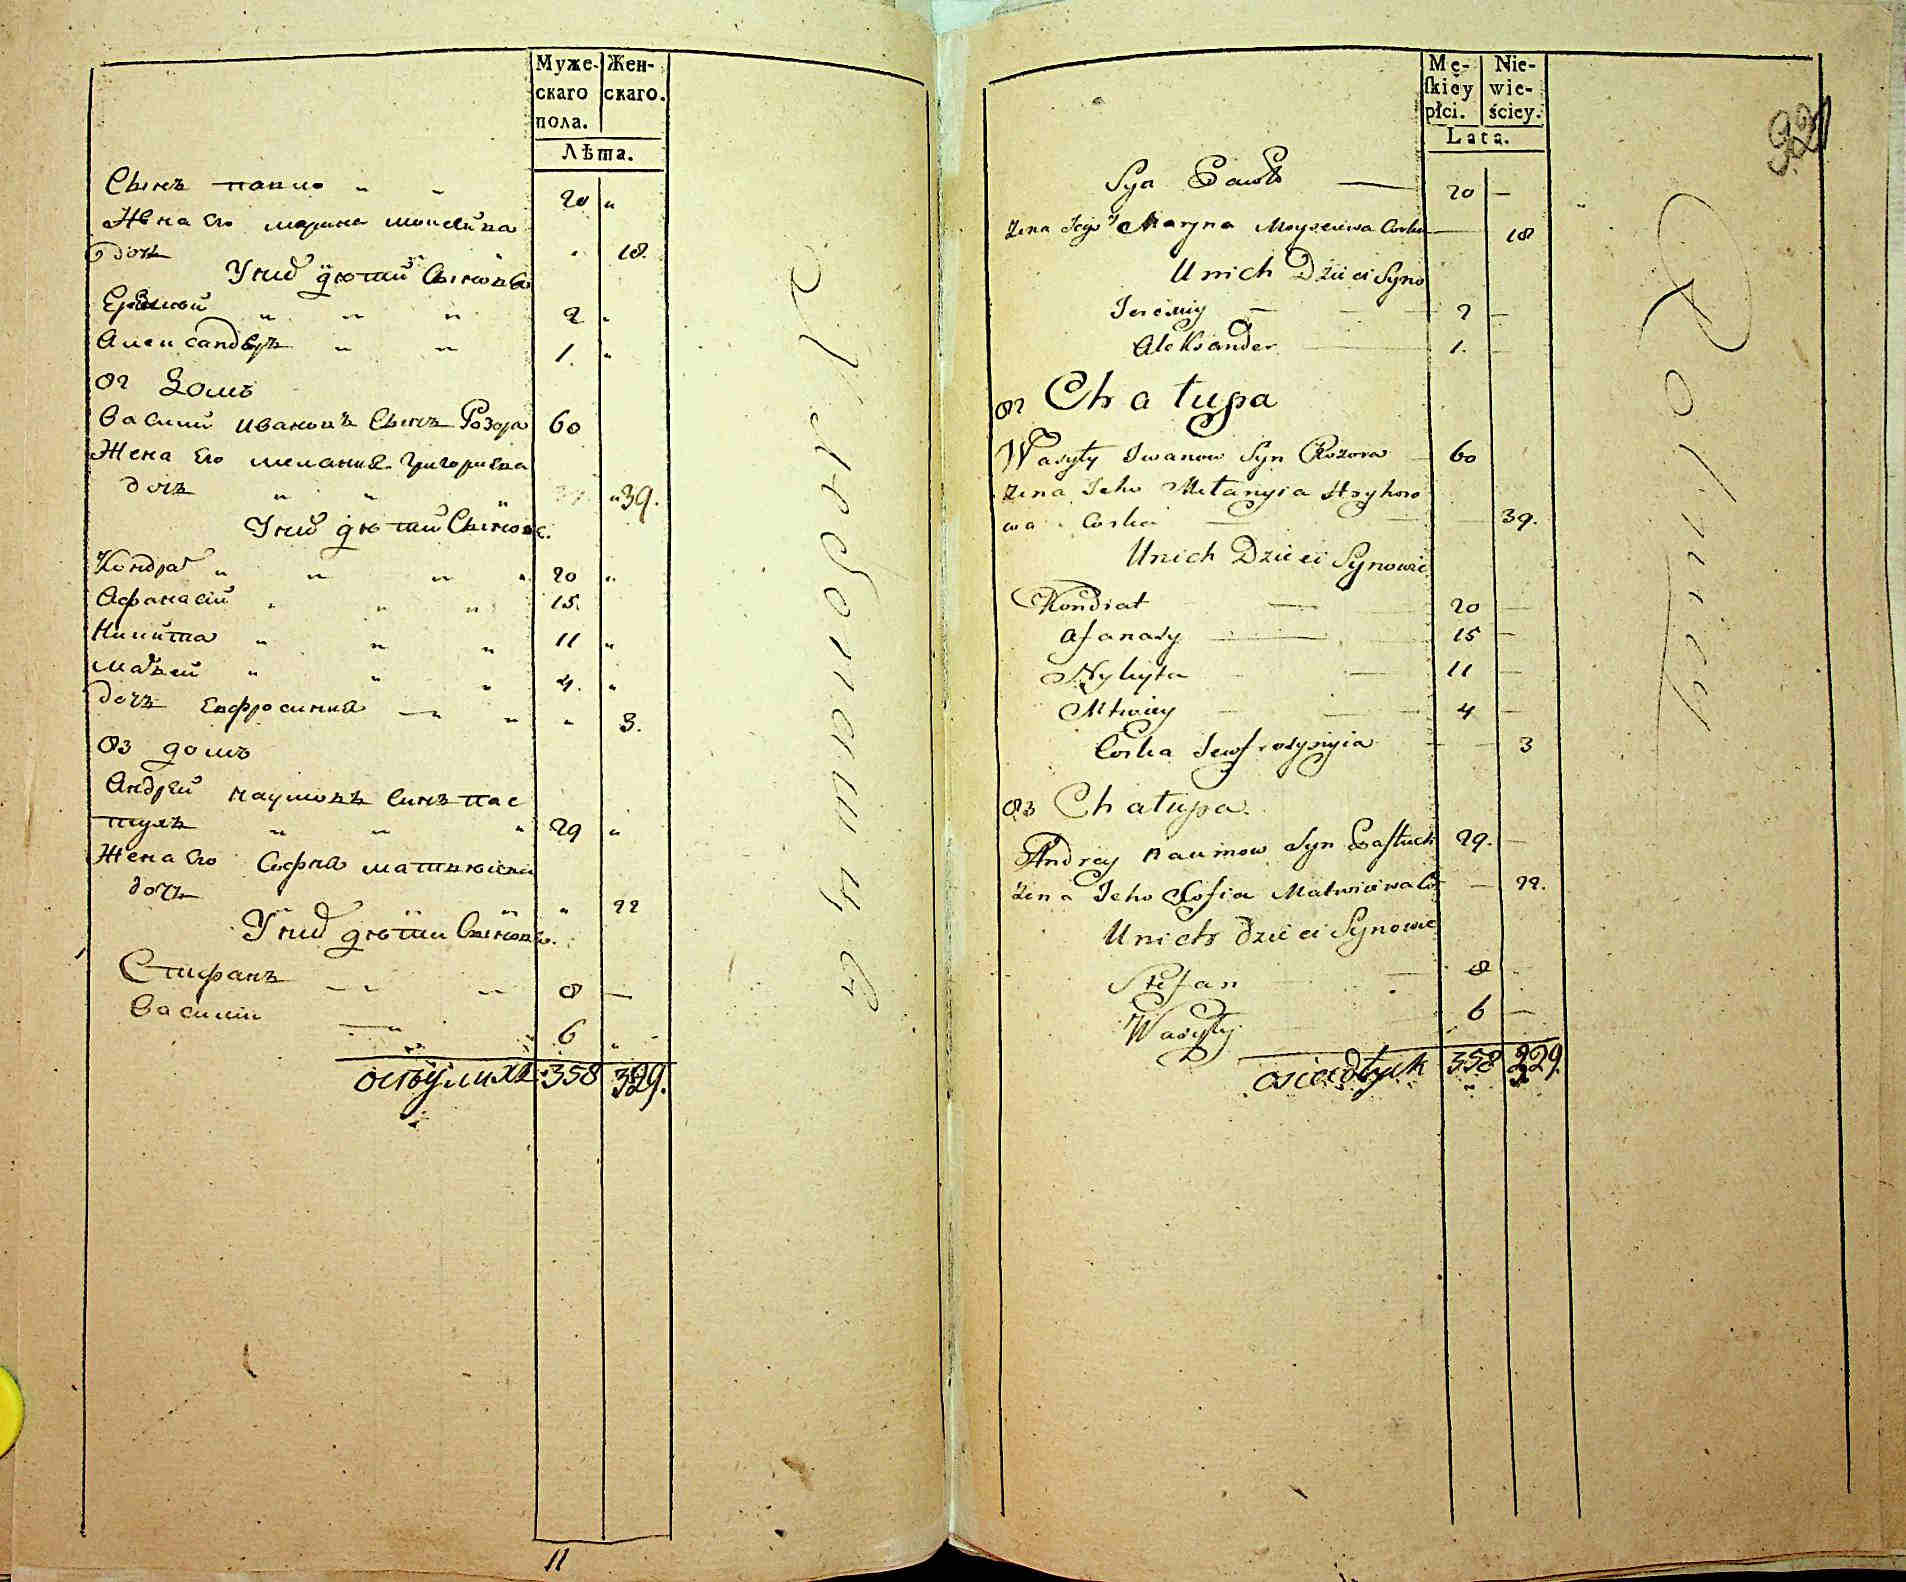 Муже- Жен-
скаго скаго.
пола.
Лѣта.
Сынъ павло 20
Жена его марина моисѣива
дочь 18.
У них дѣти Сыновѣ
Еремый 2
Александеръ 1.
82 Домъ
Василий Ивановъ Сынъ Розора 60
Жена его мелания григорива
дочь 39.
У них дѣти Сыновѣ.
Кондрат 20
Афанасий 15.
Никита 11
Матвей 4.
дочь Евфросиния 3.
83 домъ
Андрей наумовъ Синъ пас
тухъ 29
Жена его Софиа матвѣюва
дочь 22
У них дѣти Сыновѣ.
Стифанъ 8
Василий 6
осѣдлихъ 358 329.
11
Mę- Nie-
ſkiéy wie-
płci. ściey.
Lata.
321
Syn Pawło 20
Żena Jego Maryna Moyseiwa Corka 18
U nich Dzieci Syno
Jeremiy 2
Aleksander 1.
82 Chałupa
Wasyły Iwanow Syn Rozora 60
Żena Jeho Mełanyia Hryhoro
wa Corka 39.
U nich Dzieci Synowie
Kondrat 20
Afanasy 15
Nykyta 11
Mtwiey 4
Corka Jewfrosynyia 3
83 Chałupa.
Andrey Naumow Syn Pastuch 29.
Żena Jeho Zofia Matwiiwa Co 22.
U nich dzieci Synowie
Stefan 8
Wasyły 6
osiadłych 358 329.
Rolniey